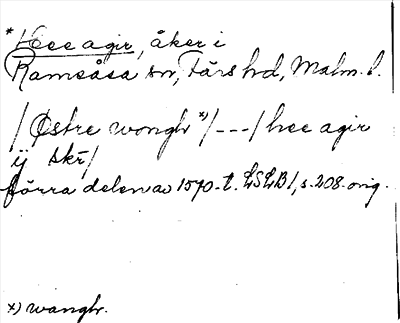 * Hee agir, åker i
Ramsåsa sn, Färs hd, Malm. l.
/ Østre wongh x) / --- / hee agir
ij skr /
förra delen av 1570-t. LSLB 1, s. 208. orig.
x) wangh.